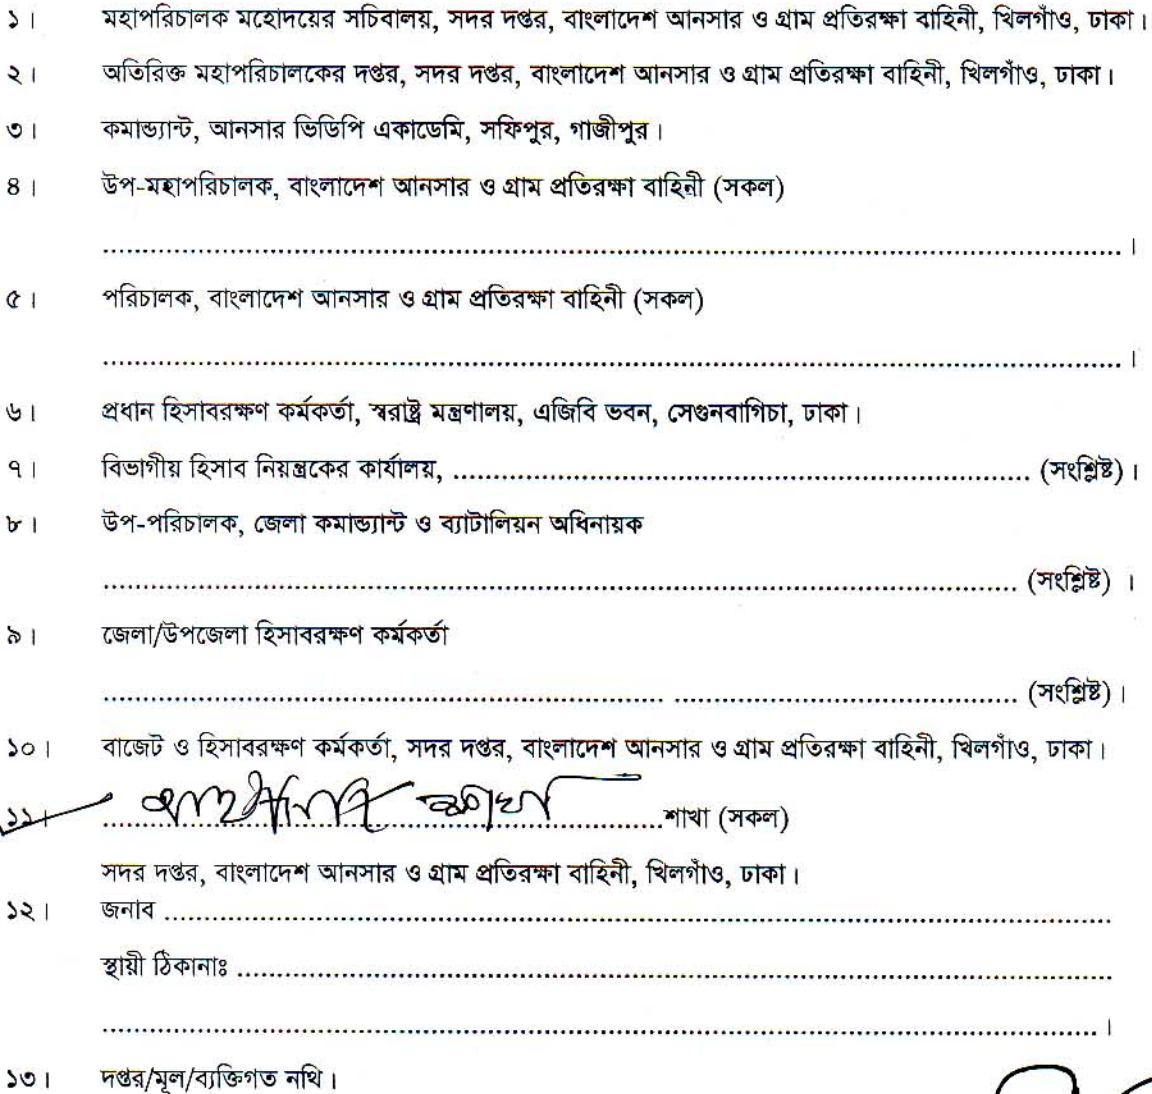 ১। মহাপরিচালক মহোদয়ের সচিবালয়, সদর দপ্তর, বাংলাদেশ আনসার ও গ্রাম প্রতিরক্ষা বাহিনী, খিলগাঁও, ঢাকা।
২। অতিরিক্ত মহাপরিচালকের দপ্তর, সদর দপ্তর, বাংলাদেশ আনসার ও গ্রাম প্রতিরক্ষা বাহিনী, খিলগাঁও, ঢাকা।
৩। কমান্ড্যান্ট, আনসার ভিডিপি একাডেমি, সফিপুর, গাজীপুর।
৪। উপ-মহাপরিচালক, বাংলাদেশ আনসার ও গ্রাম প্রতিরক্ষা বাহিনী (সকল)
.................................................।
৫। পরিচালক, বাংলাদেশ আনসার ও গ্রাম প্রতিরক্ষা বাহিনী (সকল)
.................................................।
৬। প্রধান হিসাবরক্ষণ কর্মকর্তা, স্বরাষ্ট্র মন্ত্রণালয়, এজিবি ভবন, সেগুনবাগিচা, ঢাকা।
৭। বিভাগীয় হিসাব নিয়ন্ত্রকের কার্যালয়, ................................ (সংশ্লিষ্ট)।
৮। উপ-পরিচালক, জেলা কমান্ড্যান্ট ও ব্যাটালিয়ন অধিনায়ক
................................................. (সংশ্লিষ্ট) ।
৯। জেলা/উপজেলা হিসাবরক্ষণ কর্মকর্তা
.............................. .................... (সংশ্লিষ্ট)।
১০। বাজেট ও হিসাবরক্ষণ কর্মকর্তা, সদর দপ্তর, বাংলাদেশ আনসার ও গ্রাম প্রতিরক্ষা বাহিনী, খিলগাঁও, ঢাকা।
১১। ..............................শাখা (সকল)
সদর দপ্তর, বাংলাদেশ আনসার ও গ্রাম প্রতিরক্ষা বাহিনী, খিলগাঁও, ঢাকা।
১২। জনাব .................................................
স্থায়ী ঠিকানাঃ .................................................
.................................................।
১৩। দপ্তর/মূল/ব্যক্তিগত নথি।